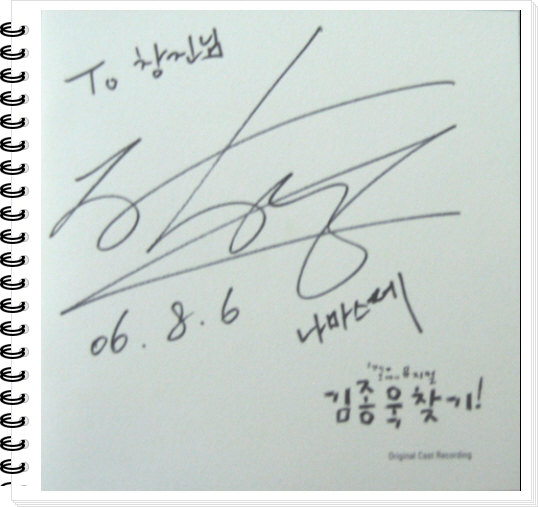 To 창진님
06.8.6
나마스떼
김종욱찾기!
Original Cast Recording